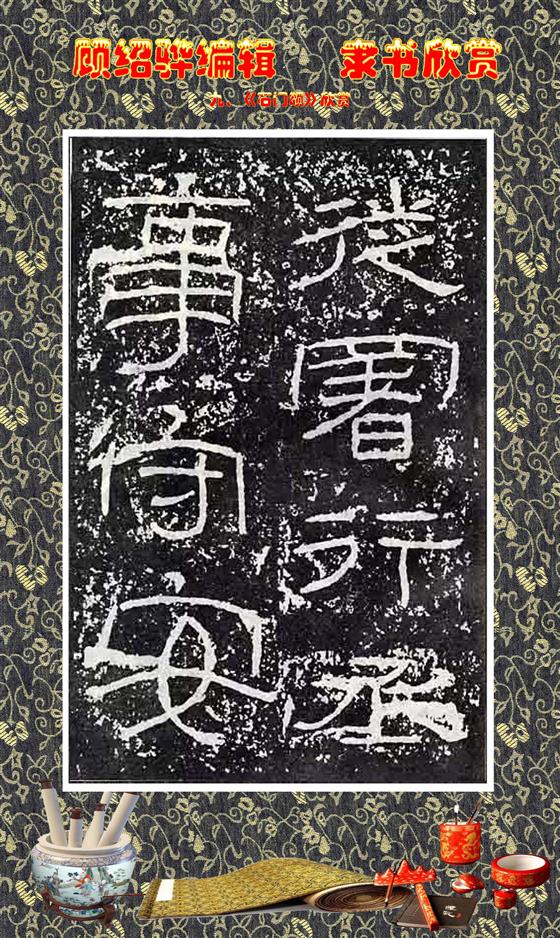 顾绍骅编辑 隶书欣赏
九、《石门颂》欣赏
徙署行丞
事守安